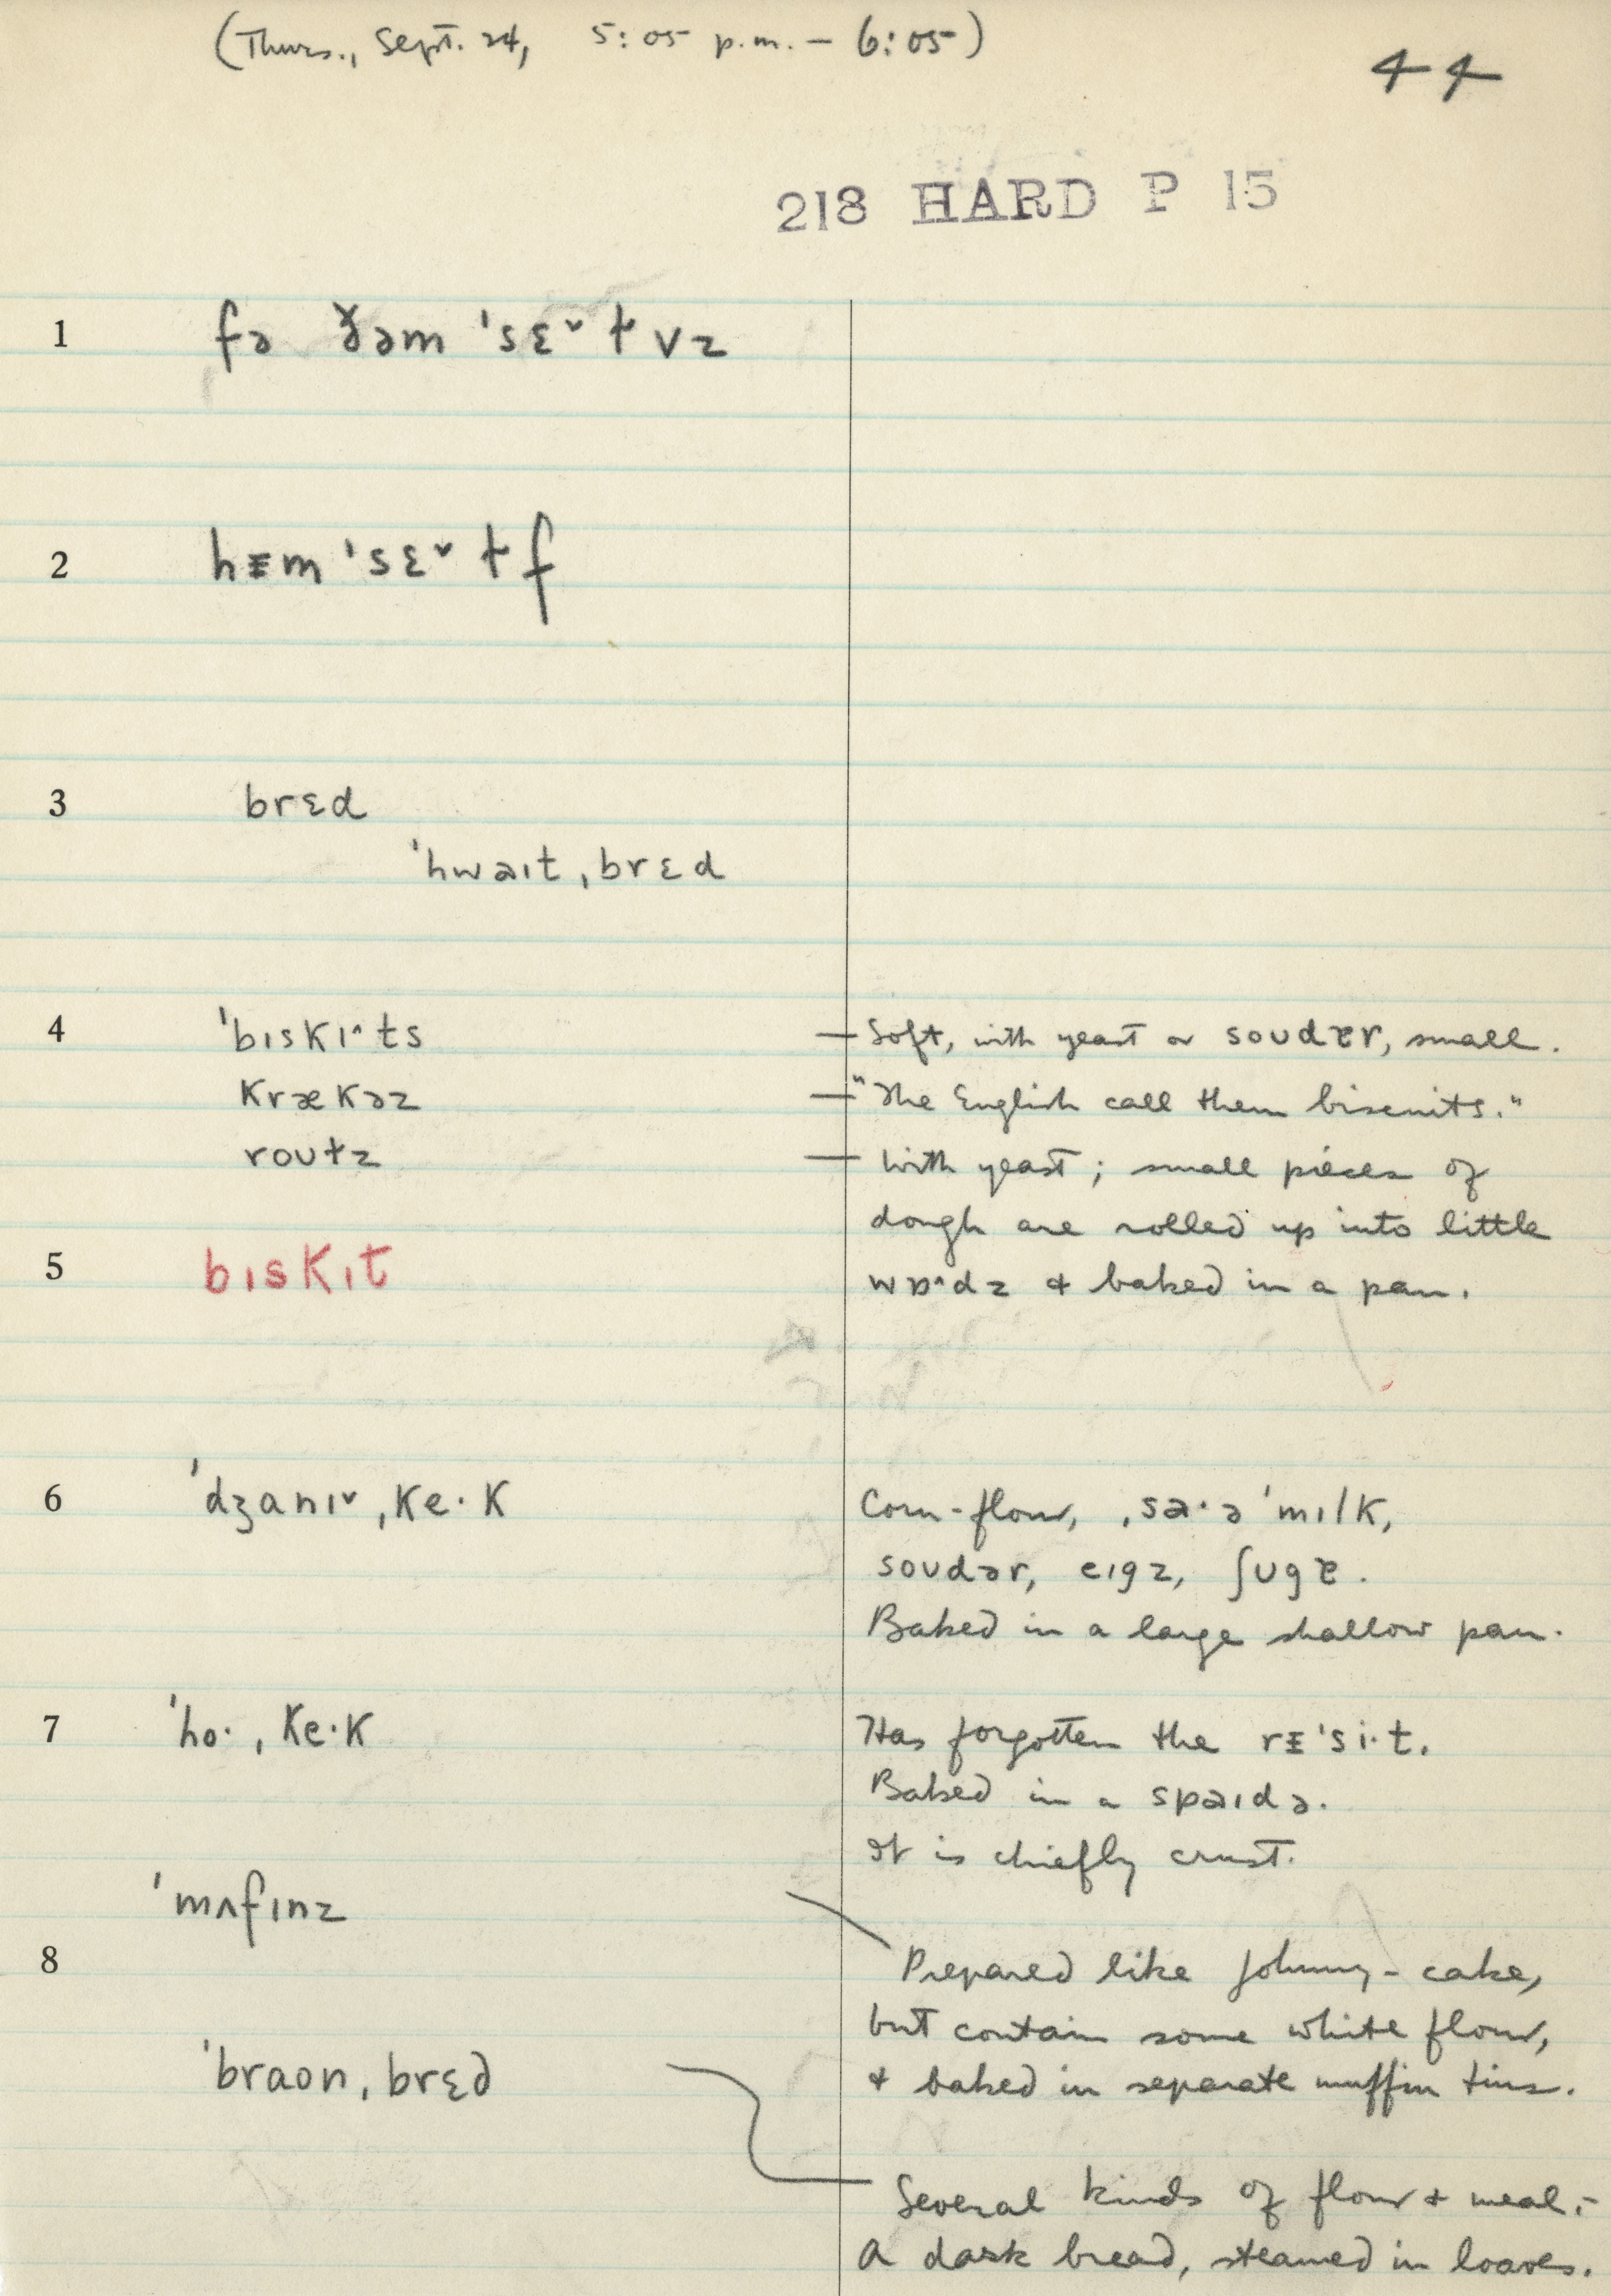 (Thurs., Sept. 24, 5:05 p.m. – 6:05)
44
218 HARD P 15
1 fə ðəm ˈsɛ˅ɫvz
2 hɪm ˈsɛ˅ɫf
3 brɛd
ˈhwaɪt ˌbrɛd
4 ˈbɪskɪ^ts — Soft, with yeast or soudɚr, small.
krækəz — "The English call them biscuits."
roʊɫz — With yeast; small pieces of
dough are rolled up into little
5 bɪskɪt wɒ^dz & baked in a pan.
6 ˈdʒanɪ˅ ˌke·k Corn-flour, ˌsa·ə ˈmɪlk,
soʊdər, eɪgz, ʃʊgɚ.
Baked in a large shallow pan.
7 ˈho· ˌke·k Has forgotten the rɪˈsi·t.
Baked in a spaɪdə.
It is chiefly crust.
ˈmʌfɪnz
8 Prepared like johnny-cake,
but contain some white flour,
& baked in separate muffin tins.
ˈbraʊn ˌbrɛd
Several kinds of flour & meal.–
A dark bread, steamed in loaves.